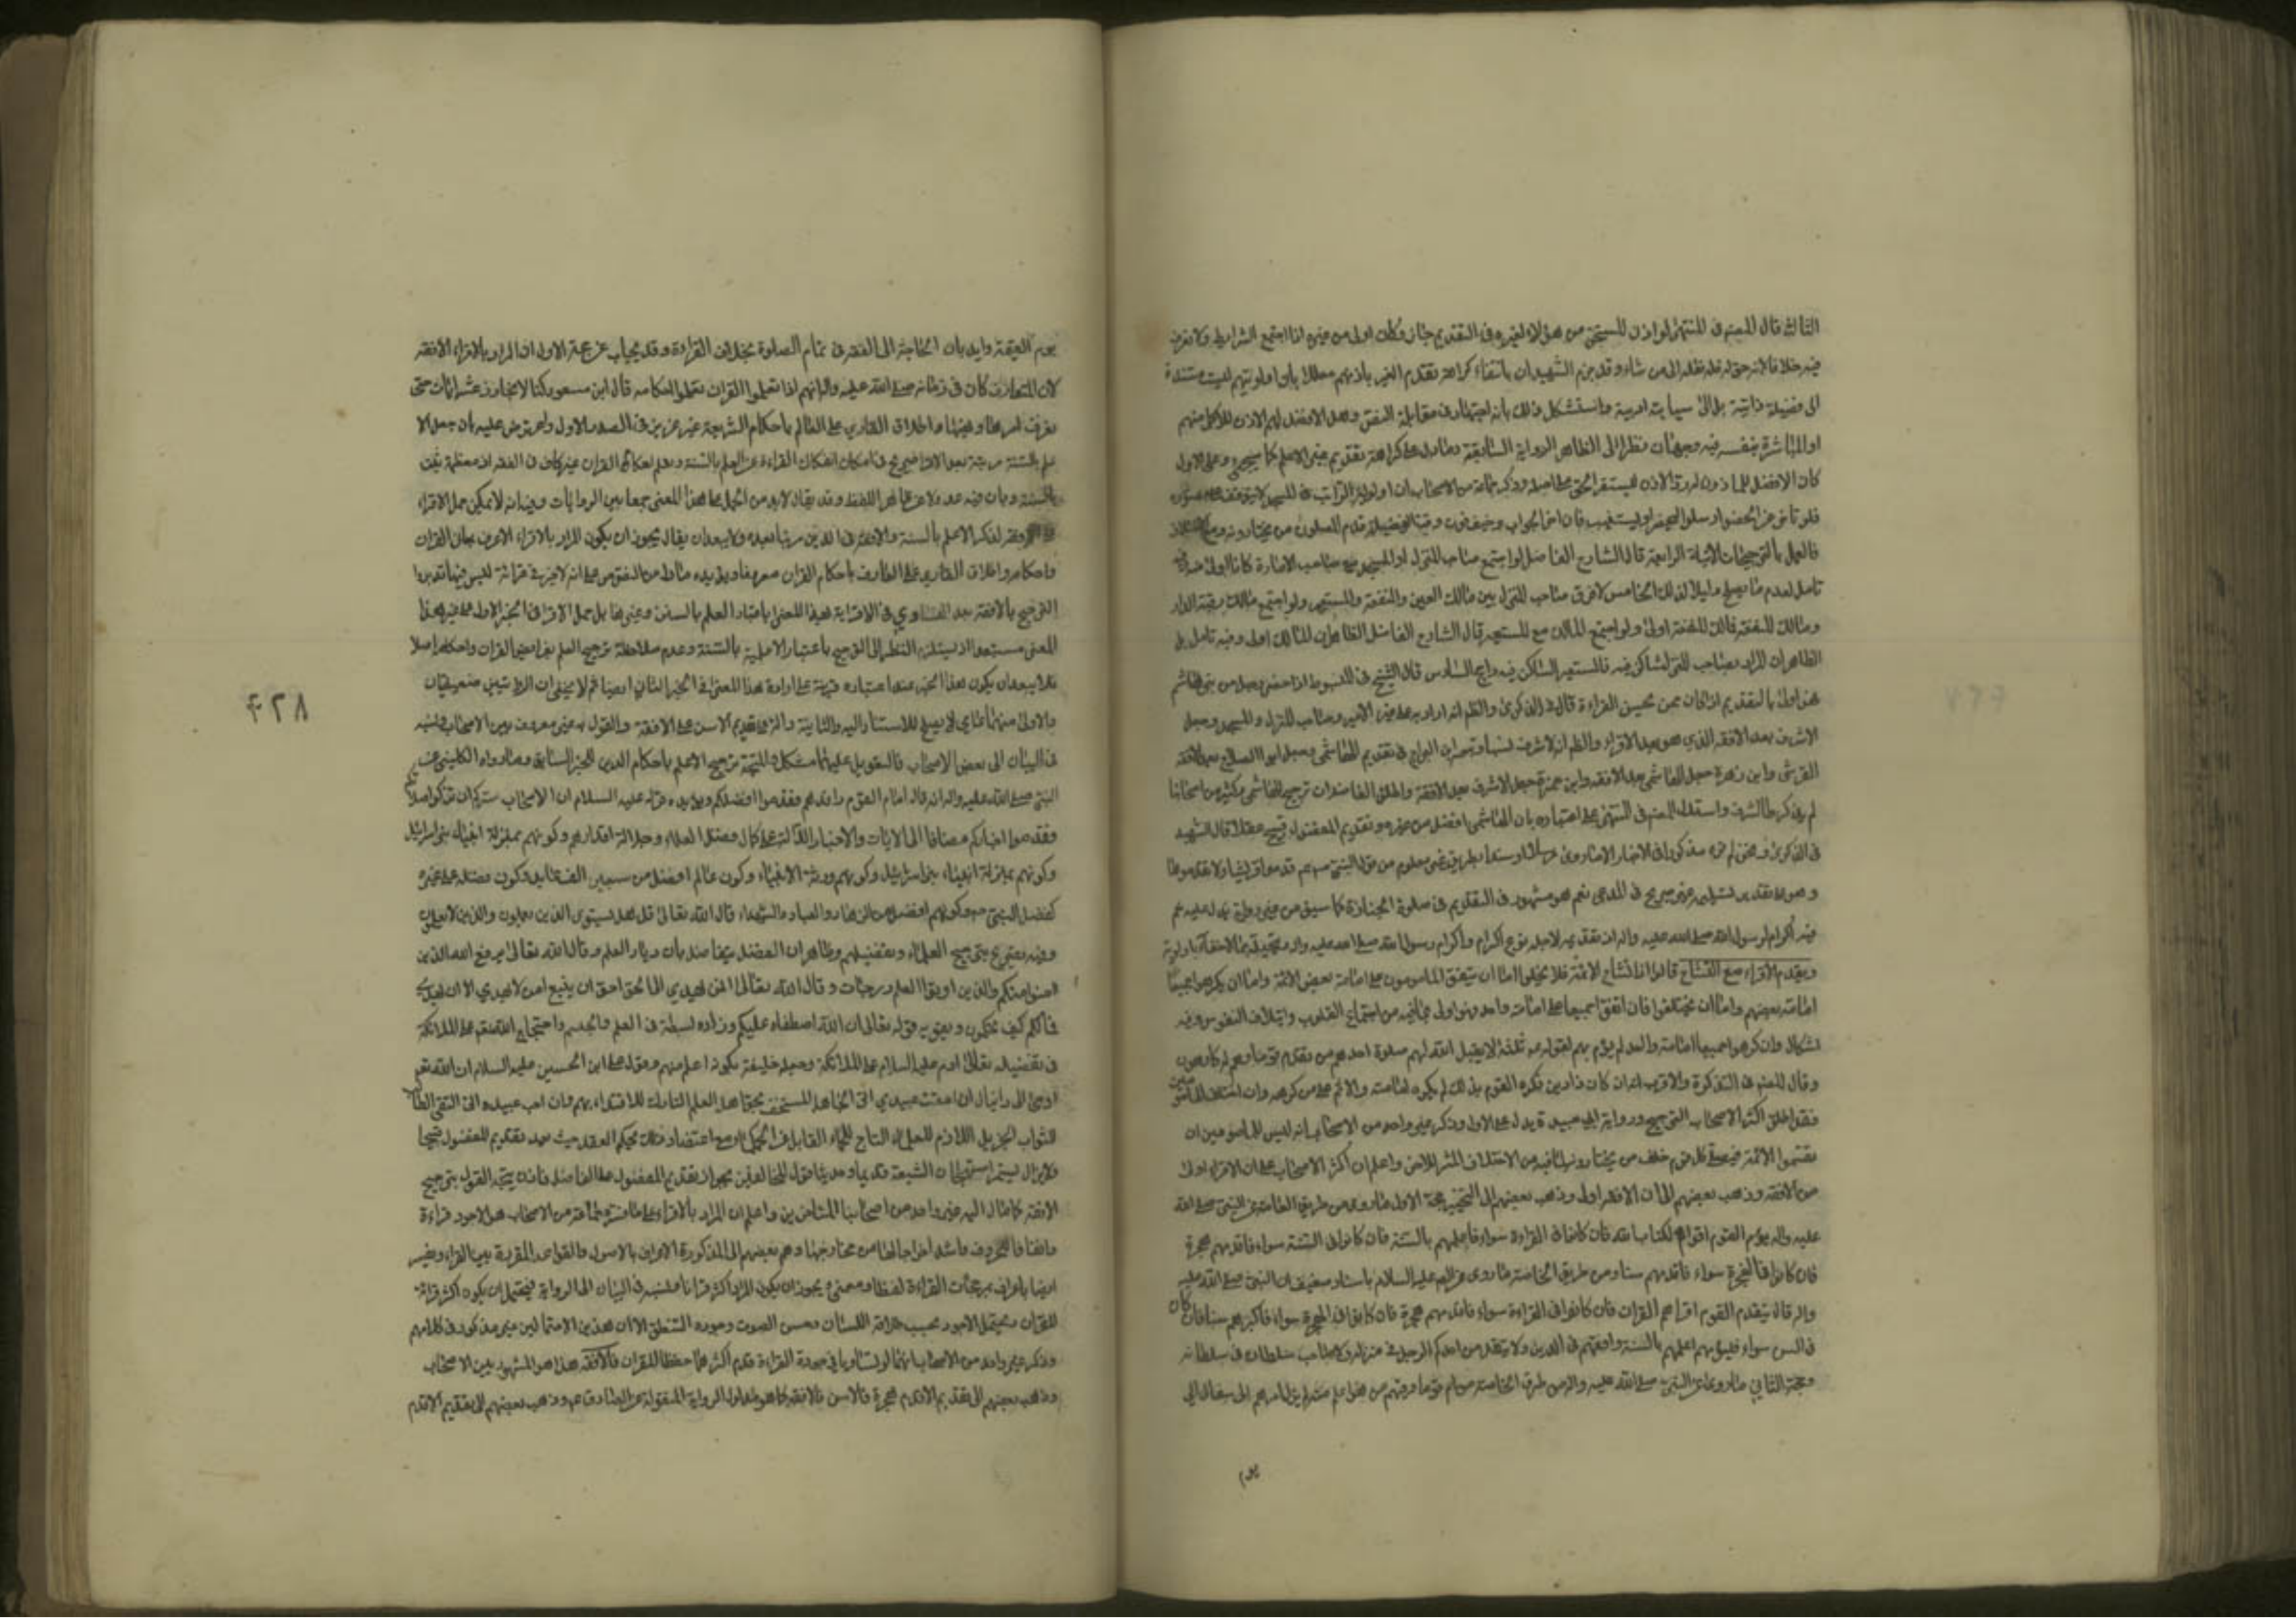 الثالث قال المصنف في المنتهى لو اذن المستحق من هؤلاء لغيره في التقديم جاز وكان اولى من غيره اذا اجتمع الشرايط ولا نعرف
فيه خلافا لانه حق له فله نقله الى من شاء وقد جزم الشهيدان بانتفاء كراهة تقدم الغير باذنهم معللا بان اولويتهم ليست مستندة
الى فضيلة ذاتية بل الى سياسة ادبية واستشكل ذلك بانه اجتهاد في مقابلة النص وهل الافضل لهم الاذن للاكمل منهم
او المباشرة بنفسه فيه وجهان نظرا الى الظاهر الرواية السابقة وما دل على كراهة تقديم غير الاعلم كما سيجئ وعلى الاول
كان الافضل للماذون له رد الاذن ليستقر الحق على اصله وذكر جماعة من الاصحاب ان اولوية الراتب في المسجد لا يتوقف على حضوره
فلو تاخر عن الحضور ارسلوا اليه ليحضر او ليستنيب فان اخر الجواب وخيف فوت وقت الفضيلة قدم المصلون من يختارونه
فالعمل بالترجيحات الاتية الرابعة قال الشارح الفاضل لو اجتمع صاحب المنزل او المسجد مع صاحب الامارة كانا اولى منه وفيه
تامل لعدم ما يصلح دليلا لذلك الخامس لا فرق صاحب المنزل بين مالك العين والمنفعة والمستعير ولو اجتمع مالك رقبة الدار
ومالك المنفعة فمالك المنفعة اولى ولو اجتمع المالك مع المستعير قال الشارح الفاضل الظاهر ان المالك اولى وفيه تامل بل
الظاهر ان المراد بصاحب المنزل ساكن فيه فالمستعير الساكن فيه راجح السادس قال الشيخ في المبسوط اذا حضر رجل من بني هاشم
فهو اولى بالتقديم اذا كان ممن يحسن القراءة قال في الذكرى والظم انه اراد به على غير الامير وصاحب المنزل والمسجد وجعل
الاشرف بعد الافقه الذي هو بعد الاقراء والظم انه الاشرف نسبا وتبعه ابن البراج في تقديم الهاشمي وجعل ابو الصلاح بعد الافقه
القرشي وابن زهرة جعل الهاشمي بعد الافقه وابن حمزة جعل الاشرف بعد الافقه واطلق الفاضلان ترجيح الهاشمي وكثير من اصحابنا
لم يذكرها الشرف واستدل المصنف في المنتهى على اعتباره بان الهاشمي افضل من غيره وتقديم المفضول قبيح عقلا قال الشهيد
في الذكرى ونحن لم نره مذكورا في الاخبار الا ما روى مرسلا او مسندا بطريق غير معلوم من قول النبي ص قدموا قريشا ولا تقدموها
وهو على تقدير تسليمه غير صريح في المدعى نعم هو مشهور في التقديم في صلوة الجنازة كما سبق من غير رواية تدل عليه نعم
فيه اكرام لرسول الله صلى الله عليه واله اذ تقديمه لاجله نوع اكرام واكرام رسول الله صلى الله عليه واله وتبجيله مما لا خفاء باولويته
ويقدم الاقراء مع التشاح قالوا اذا تشاح الائمة فلا يخلوا اما ان يتفق المامومون على امامة بعض الائمة واما ان يكرهوا جميعا
امامة بعضهم واما ان يختلفوا فان اتفق اجميعا على امامة واحد فهو اولى لما فيه من اجتماع القلوب وايتلاف النفوس وفيه
اشكال وان كرهوا جميعا امامة واحد لم يؤم بهم لقوله ص ثلثة لا يقبل الله لهم صلوة احدهم من تقدم قوما وهم له كارهون
وقال المصنف في التذكرة والاقرب انه ان كان ذا دين فكره القوم بذلك لم يكره امامته والاثم على من كرهه وان اختلف المامومين
فقد اطلق اكثر الاصحاب الترجيح ورواية ابي عبيدة يدل على الاول وذكر غير واحد من الاصحاب انه ليس للمامومين ان
يقتسموا الائمة فيصلى كل قوم خلف من يختارونه لما فيه من الاختلاف المثير للاحن واعلم ان اكثر الاصحاب على ان الاقراء اولى
من الافقه وذهب بعضهم الى ان الافقه اولى وذهب بعضهم الى التخيير حجة الاول ما روى من طريق العامة عن النبي صلى الله
عليه واله يؤم القوم اقراهم لكتاب الله فان كانوا في القراءة سواء فاعلمهم بالسنة فان كانوا في السنة سواء فاقدمهم هجرة
فان كانوا في الهجرة سواء فاقدمهم سنا ومن طريق الخاصة ما روى عن الصم عليه السلام باسناد ضعيف ان النبي صلى الله عليه
واله قال يتقدم القوم اقراهم القران فان كانوا في القراءة سواء فاقدمهم هجرة فان كانوا في الهجرة سواء فاكبرهم سنا فان كان
في السن سواء فليؤمهم اعلمهم بالسنة وافقههم في الدين ولا يتقدمن احدكم الرجل في منزله ولا صاحب سلطان في سلطانه
وحجة الثاني ما روى عن النبي صلى الله عليه واله من طرق الخاصة من ام قوما وفيهم من هو اعلم منه لم يزل امرهم الى سفال الى
يوم
يوم القيمة وايد بان الحاجة الى الفقه في تمام الصلوة بخلاف القراءة وقد يجاب عن حجة الاول ان المراد بالاقراء الافقه
لان المتعارف كان في زمانه صلى الله عليه واله انهم اذا تعلموا القران تعلموا احكامه قال ابن مسعود كنا لا نجاوز عشر ايات حتى
نعرف امرها ونهيها واطلاق القاري على العالم باحكام الشريعة غير عزيز في الصدر الاول واعترض عليه بان جعل الا
علم بالسنة مرتبة بعد الاقرا صريح في امكان انفكاك القراءة عن العلم بالسنة وتعلم احكام القران غير كاف في الفقه اذ معظمه يثبت
بالسنة وبان فيه عدولا عن ظاهر اللفظ وقد يقال لا بد من الحمل على هذا المعنى جمعا بين الروايات وفيه انه لا يمكن حمل الاقراء
على الافقه لذكر الاعلم بالسنة والافقه في الدين مرتبا بعده ولا يبعد ان يقال يجوز ان يكون المراد بالاقراء الاعرف بمعان القران
واحكامه واطلاق القاري على العارف باحكام القران معروف ويؤيده ما دل من النصوص على انه لا خير في قراءة ليس فيها تدبر واما
الترجيح بالافقه بعد التساوي في الاقراية لهذا المعنى باعتبار العلم بالسنن وغيرها بل حمل الاقرا في الخبر الاول على غير هذا
المعنى مستبعد اذ يستلزم النظر الى الترجيح باعتبار الاعلمية بالسنة وعدم ملاحظة ترجيح العلم بمعاني القران واحكامه اصلا
فلا يبعد ان يكون هذا الخبر عند اعتباره قرينة على ارادة هذا المعنى في الخبر الثاني ايضا ثم لا يخفى ان الروايتين ضعيفتان
والاولى منهما عامي لا يصلح للاستناد اليه والثانية دالة على تقديم الاسن على الافقه والقول به غير معروف بين الاصحاب ونسبه
في البيان الى بعض الاصحاب فالتعويل عليهما مشكل والمتجه ترجيح الاعلم باحكام الدين للخبر السابق وما رواه الكليني عن
النبي صلى الله عليه واله انه قال امام القوم وافدهم فقدموا افضلكم ويؤيده قوله عليه السلام ان الاصحاب سركم ان تزكوا صلاتكم
فقدموا خياركم مضافا الى الايات والاخبار الدالة على كمال فضل العلماء وجلالة اقدارهم وكونهم بمنزلة انبياء بني اسرائيل
وكونهم بمنزلة انبياء بني اسرائيل وكونهم ورثة الانبياء وكون عالم افضل من سبعين الف عابد وكون فضله على غيره
كفضل النبي ص وكونهم افضل من الزهاد والعباد والشهداء قال الله تعالى قل هل يستوي الذين يعلمون والذين لا يعلمون
وفيه تصريح بترجيح العلماء وتفضيلهم وظاهر ان الفضل يتفاضل بان دياد العلم وقال الله تعالى يرفع الله الذين
امنوا منكم والذين اوتوا العلم درجات وقال الله تعالى افمن يهدي الى الحق احق ان يتبع امن لا يهدي الا ان يهدى
فما لكم كيف تحكمون ويقويه قوله تعالى ان الله اصطفاه عليكم وزاده بسطة في العلم والجسم واحتجاج الله تعالى على الملائكة
في تفضيله تعالى ادم عليه السلام على الملائكة وجعله خليفة بكونه اعلم منهم وقول على ابن الحسين عليه السلام ان الله تعالى
اوحى الى دانيال ان امقت عبيدي الى الجاهل المستخف بحق اهل العلم التارك للاقتداء بهم وان احب عبيدي الى التقي الطالب
للثواب الجزيل اللازم للعلماء التابع للحلماء القابل عن الحكماء ومما اعتضاد ذلك بحكم العقل حيث يعد تقديم المفضول قبيحا
ولا يزال يستمر استهجان الشيعة قديما وحديثا قول المخالفين بجواز تقديم المفضول على الفاضل فاذن يتجه القول بترجيح
الافقه كما مال اليه غير واحد من اصحابنا المتاخرين واعلم ان المراد بالاقراء على ما فسره جماعة من الاصحاب هو الاجود قراءة
واتقانا للحروف واشد اخراجا لها من مخارجها وضم بعضهم الى المذكورة الاعرف بالاصول والقواعد المقررة بين القراء وفسر
ايضا باعرف بمرجحات القراءة لفظا ومعنى ويجوز ان يكون المراد اكثر قرانا ونسبه في البيان الى الرواية فيحتمل ان يكون اكثر قراءة
للقران ويحتمل الاجود بحسب طلاقة اللسان وحسن الصوت وجودة التنطق الا ان هذين الاحتمالين غير مذكور في كلامهم
وذكر غير واحد من الاصحاب انهما لو تساويا في جودة القراءة قدم اكثرهما حفظا للقران فالافقه هذا هو المشهور بين الاصحاب
وذهب بعضهم الى تقديم الاقدم هجرة فالاسن فالافقه كما هو مدلول الرواية المنقولة عن الصادق ع وذهب بعضهم الى تقديم الاقدم
۴۲۸